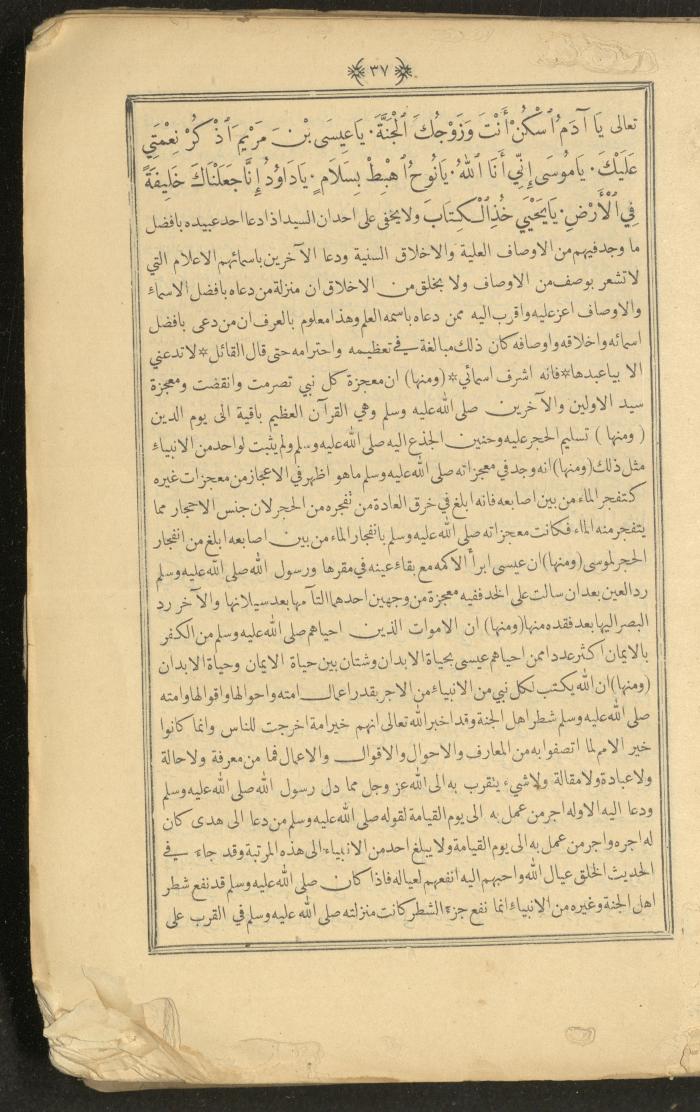 ﴿ ٣٧ ﴾
تعالى يَا آدَمُ ٱسْكُنْ أَنْتَ وَزَوْجُكَ ٱلْجَنَّةَ. يَاعِيسَى بْنَ مَرْيَمَ ٱذْكُرْ نِعْمَتِي
عَلَيْكَ. يَامُوسَى إِنِّي أَنَا ٱللهُ. يَانُوحُ ٱهْبِطْ بِسَلَامٍ. يَادَاوُدُ إِنَّا جَعَلْنَاكَ خَلِيفَةً
فِي ٱلْأَرْضِ. يَايَحْيَي خُذِ ٱلْكِتَابَ ولا يخفى على احد ان السيد اذا دعا احد عبيده بافضل
ما وجد فيهم من الاوصاف العلية والاخلاق السنية ودعا الآخرين باسمائهم الاعلام التي
لا تشعر بوصف من الاوصاف ولا بخلق من الاخلاق ان منزلة من دعاه بافضل الاسماء
والاوصاف اعز عليه واقرب اليه ممن دعاه باسمه العلم وهذا معلوم بالعرف ان من دعى بافضل
اسمائه واخلاقه واوصافه كان ذلك مبالغة في تعظيمه واحترامه حتى قال القائل * لا تدعني
الا بيا عبدها * فانه اشرف اسمائي * (ومنها) ان معجزة كل نبي تصرمت وانقضت ومعجزة
سيد الاولين والآخرين صلى الله عليه وسلم وهي القرآن العظيم باقية الى يوم الدين
(ومنها) تسليم الحجر عليه وحنين الجذع اليه صلى الله عليه وسلم ولم يثبت لواحد من الانبياء
مثل ذلك (ومنها) انه وجد في معجزاته صلى الله عليه وسلم ما هو اظهر في الاعجاز من معجزات غيره
كتفجر الماء من بين اصابعه فانه ابلغ في خرق العادة من تفجره من الحجر لان جنس الاحجار مما
يتفجر منه الماء فكانت معجزاته صلى الله عليه وسلم بانفجار الماء من بين اصابعه ابلغ من انفجار
الحجر لموسى (ومنها) ان عيسى ابرأ الاكمه مع بقاء عينه في مقرها ورسول الله صلى الله عليه وسلم
رد العين بعد ان سالت على الخد ففيه معجزة من وجهين احدهما التآمها بعد سيلانها والآخر رد
البصر اليها بعد فقده منها (ومنها) ان الاموات الذين احياهم صلى الله عليه وسلم من الكفر
بالايمان اكثر عددا ممن احياهم عيسى بحياة الابدان وشتان بين حياة الايمان وحياة الابدان
(ومنها) ان الله يكتب لكل نبي من الانبياء من الاجر بقدر اعمال امته واحوالها واقوالها وامته
صلى الله عليه وسلم شطر اهل الجنة وقد اخبر الله تعالى انهم خير امة اخرجت للناس وانما كانوا
خير الامم لما اتصفوا به من المعارف والاحوال والاقوال والاعمال فما من معرفة ولا حالة
ولا عبادة ولا مقالة ولا شيء يتقرب به الى الله عز وجل مما دل رسول الله صلى الله عليه وسلم
ودعا اليه الا وله اجر من عمل به الى يوم القيامة لقوله صلى الله عليه وسلم من دعا الى هدى كان
له اجره واجر من عمل به الى يوم القيامة ولا يبلغ احد من الانبياء الى هذه المرتبة وقد جاء في
الحديث الخلق عيال الله واحبهم اليه انفعهم لعياله فاذا كان صلى الله عليه وسلم قد نفع شطر
اهل الجنة وغيره من الانبياء انما نفع جزء الشطر كانت منزلته صلى الله عليه وسلم في القرب على